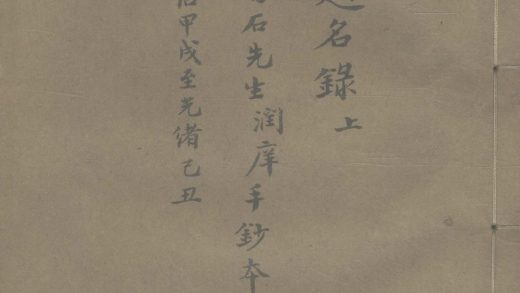 名錄上
石先生潤庠手鈔本
甲戌至光緒己丑